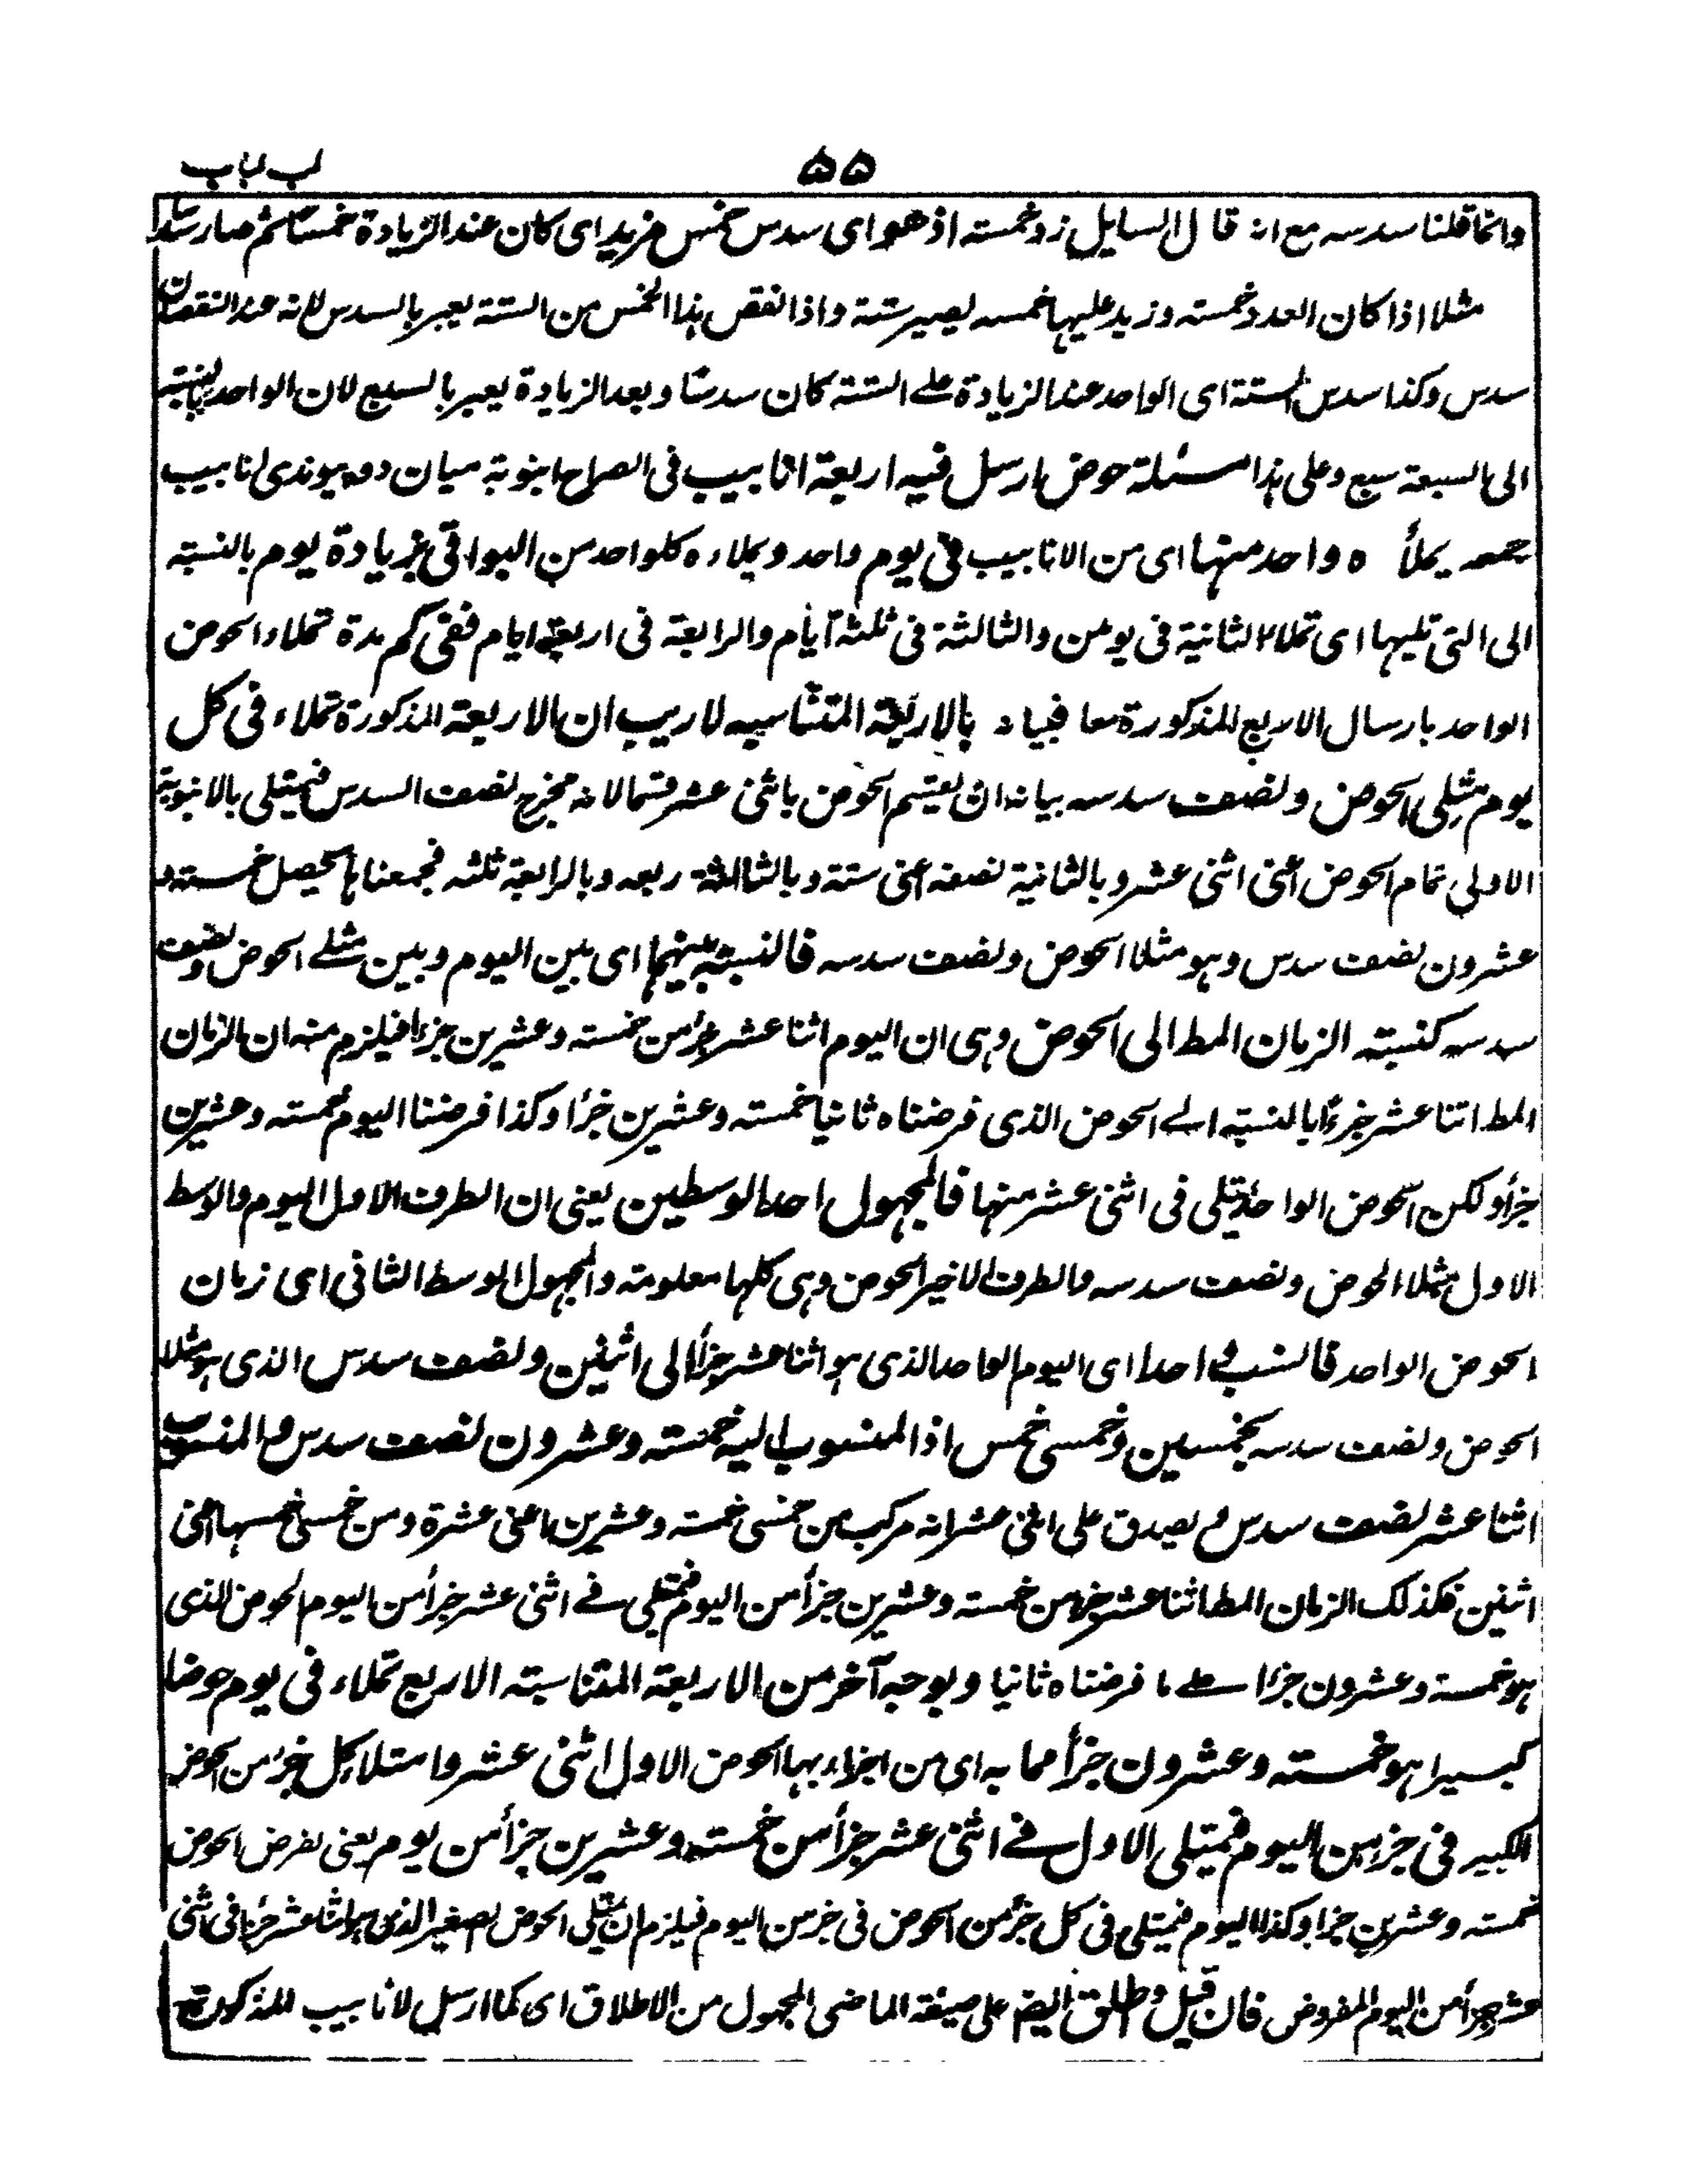 لب لباب
۵۵
وانما قلنا سدسه مع انه قال السایل زد خمسته اذ هو ای سدس خمس مزید ای کان عند الزیادة خمسا ثم صار سدسا
مثلا اذا کان العدد خمسته و زید علیها خمسه یصیر ستة و اذا نقص هذا الخمس من الستة یعبر بالسدس لانه عند النقصان
سدس و کذا سدس الستة ای الواحد عند الزیادة علے الستة کان سدسا و بعد الزیادة یعبر بالسبع لان الواحد بالنسبة
الی السبعة سبع و علی هذا مسئلة حوض ارسل فیه اربعة انابیب فی الصراح انبوبة میان دو پیوند نی انابیب
جمعه یملأ ه واحد منها ای من الانابیب فی یوم واحد و یملاء ه کلواحد من البواقی بزیادة یوم بالنسبته
الی التی تلیها ای تملاء الثانیة فی یومین والثالثة فی ثلثة ایام والرابعة فی اربعة ایام ففی کم مدة تملاء الحوض
الواحد بارسال الاربع المذکورة معا فبیانه بالاربعة المتناسبه لا ریب ان الاربعة المذکورة تملاء فی کل
یوم مثلی الحوض و نصف سدسه بیانه ان یقسم الحوض باثنی عشر قسما لانه مخرج نصف السدس فیمتلی بالانبوبة
الاولی تمام الحوض اعنی اثنی عشر و بالثانیة نصفه اعنی ستة و بالثالثة ربعه و بالرابعة ثلثه فجمعناها یحصل خمسته و
عشرون نصف سدس و هو مثلا الحوض و نصف سدسه فالنسبة بینهما ای بین الیوم و بین مثلے الحوض و نصف
سدسه کنسبته الزمان المط الی الحوض وهی ان الیوم اثنا عشر جزأ من خمسته و عشرین جزءا فیلزم منه ان الزمان
المط اثنا عشر جزءًا بالنسبته الے الحوض الذی فرضناه ثانیا خمسته و عشرین جزأ و کذا فرضنا الیوم خمسته و عشرین
جزأ و لکن الحوض الواحد یمتلی فی اثنی عشر منها فالمجهول احد الوسطین یعنی ان الطرف الاول الیوم والوسط
الاول مثلا الحوض و نصف سدسه والطرف الاخیر الحوض وهی کلها معلومته والمجهول الوسط الثانی ای زمان
الحوض الواحد فالنسب واحدا ای الیوم الواحد الذی هو اثنا عشر جزأ الی اثنین و نصف سدس الذی هو مثلا
الحوض و نصف سدسه بخمسین و خمسی خمس اذ المنسوب الیه خمسته و عشرون نصف سدس والمنسوب
اثنا عشر نصف سدس و یصدق علی اثنی عشر انه مرکب من خمسی خمسته و عشرین اعنی عشرة و من خمسی خمسها اعنی
اثنین فکذلک الزمان المط اثنا عشر جزء من خمسته و عشرین جزأ من الیوم فیمتلی فے اثنی عشر جزأ من الیوم الحوض الذی
هو خمسة و عشرون جزأ علے ما فرضناه ثانیا و بوجه آخر من الاربعة المتناسبته الاربع تملاء فی یوم حوضا
کبیرا هو خمسته و عشرون جزأ مما به ای من اجزاء بها الحوض الاول اثنی عشر و امتلا کل جزء من الحوض
الکبیر فی جزء من الیوم فیمتلی الاول فے اثنی عشر جزأ من خمسته و عشرین جزأ من یوم یعنی نفرض الحوض
خمسته و عشرین جزا و کذا الیوم فیمتلی فی کل جزء من الحوض فی جزء من الیوم فیلزم ان یمتلی الحوض الصغیر الذی هو اثنا عشر جزأ فی اثنی
عشر جزأ من الیوم المفروض فان قیل و اطلق ایض علی صیغة الماضی المجهول من الاطلاق ای کما ارسل الانابیب المذکورة